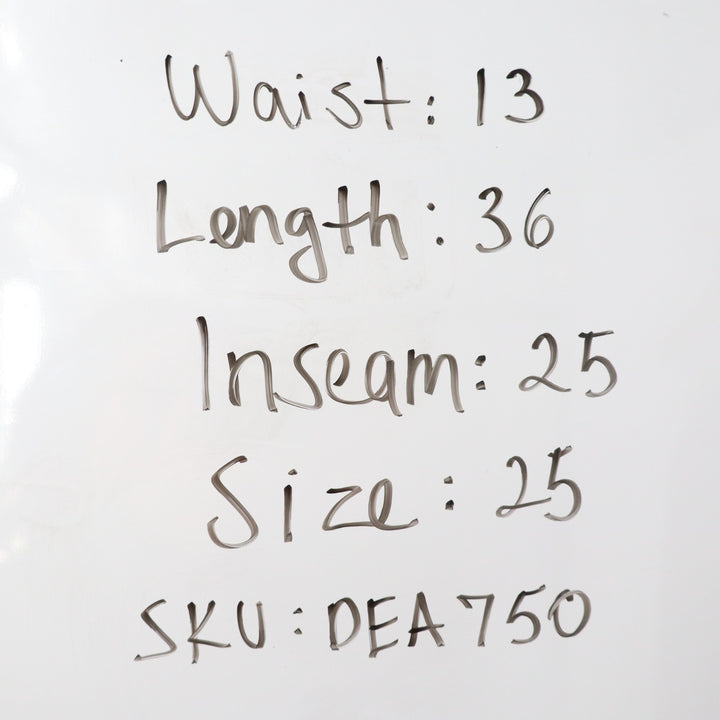 Waist: 13
Length: 36
Inseam: 25
Size: 25
SKU: DEA750